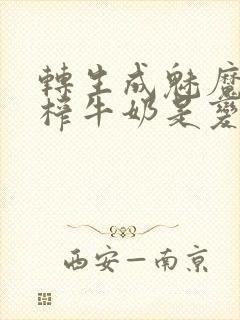 轉生成魅魔
榨牛奶是變
西安－南京